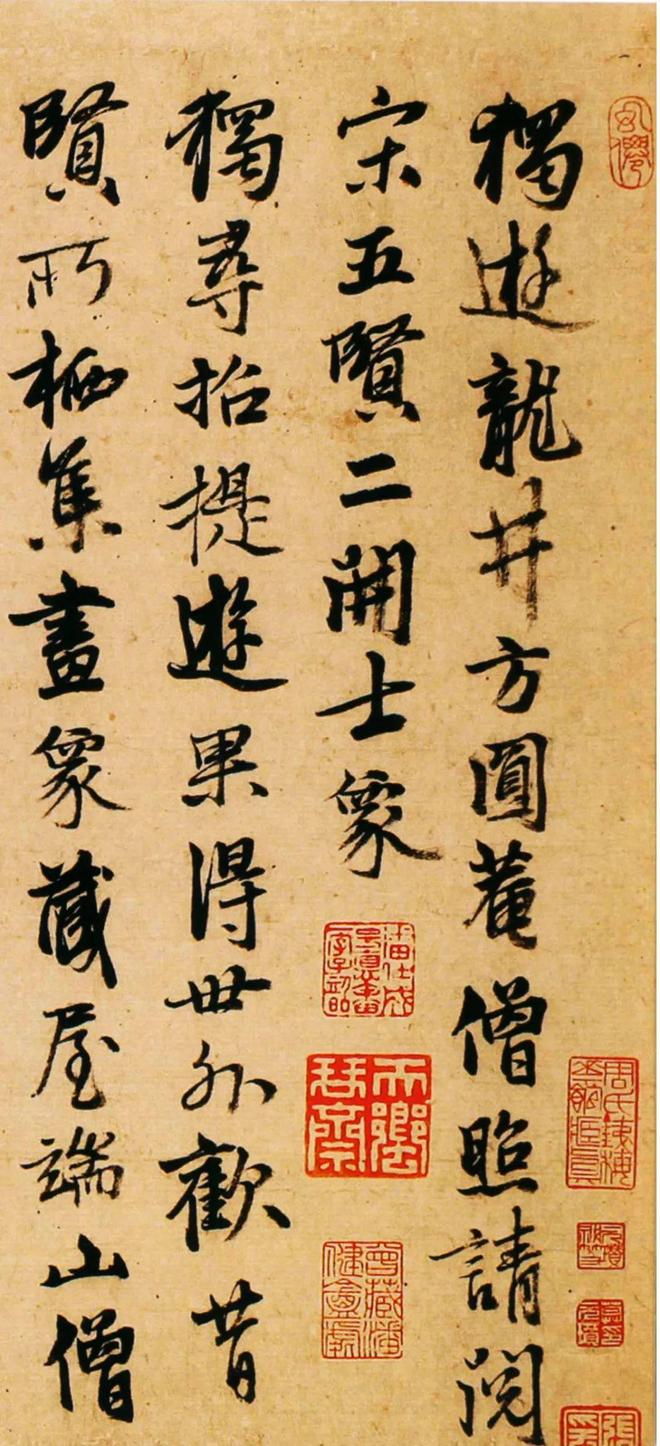 獨遊龍井方圓菴僧照請閱
宋五賢二開士象
獨尋招提遊果得世外歡昔
賢所栖集畫象藏屋端山僧